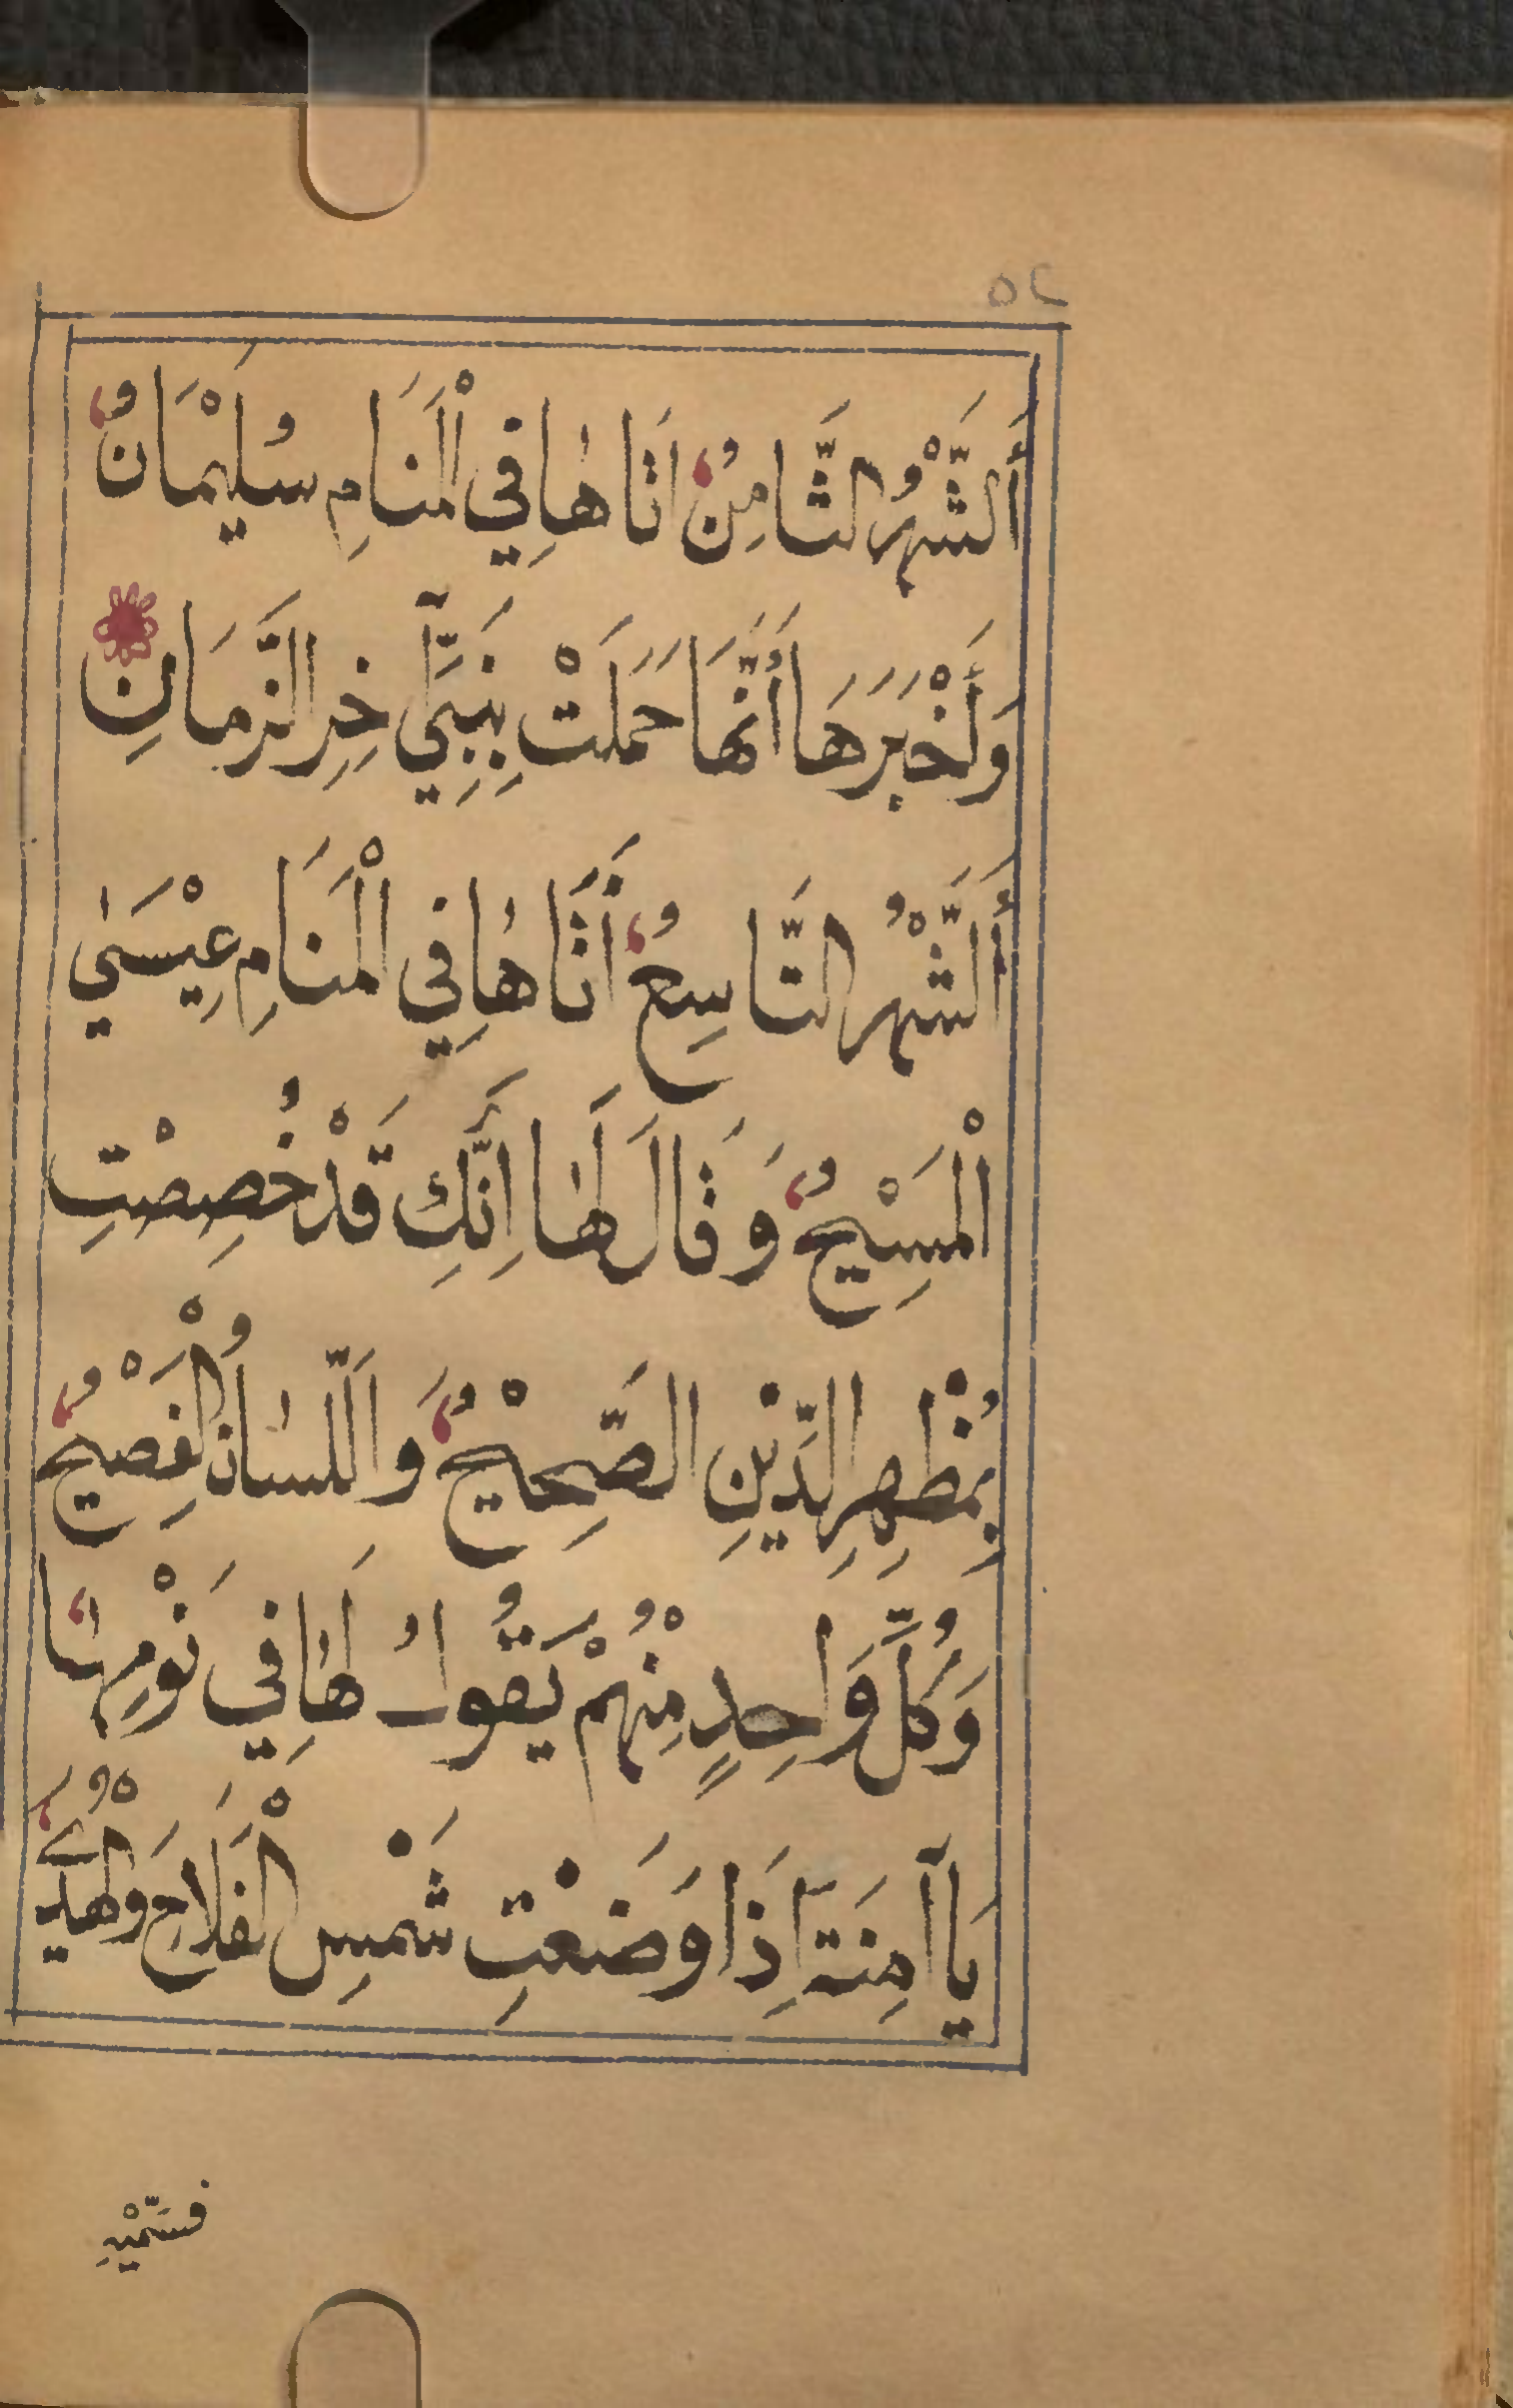 ٥٢
أَلشَّهْرُ الثَّامِنُ اَتَاهَا فِي الْمَنَامِ سُلَيْمَانُ
وَأَخْبَرَهَا أَنَّهَا حَمَلَتْ بِنَبِيِّ آخِرِ الزَّمَانِ
أَلشَّهْرُ التَّاسِعُ أَتَاهَا فِي الْمَنَامِ عِيْسَي
الْمَسِيْحُ وَقَالَ لَهَا اِنَّكِ قَدْ خُصِصْتِ
بِمُظْهِرِ الدِّيْنِ الصَّحِيْحُ وَاَللِّسَانُ الْفَصِيْحُ
وَكُلُّ وَاحِدٍ مِنْهُمْ يَقُولُ لَهَا فِي نَوْمِهَا
يَا آمِنَةَ اِذَا وَضَعْتِ شَمْسِ الْفَلَاحِ وَالْهُدَي
فَسَمِّيْهِ